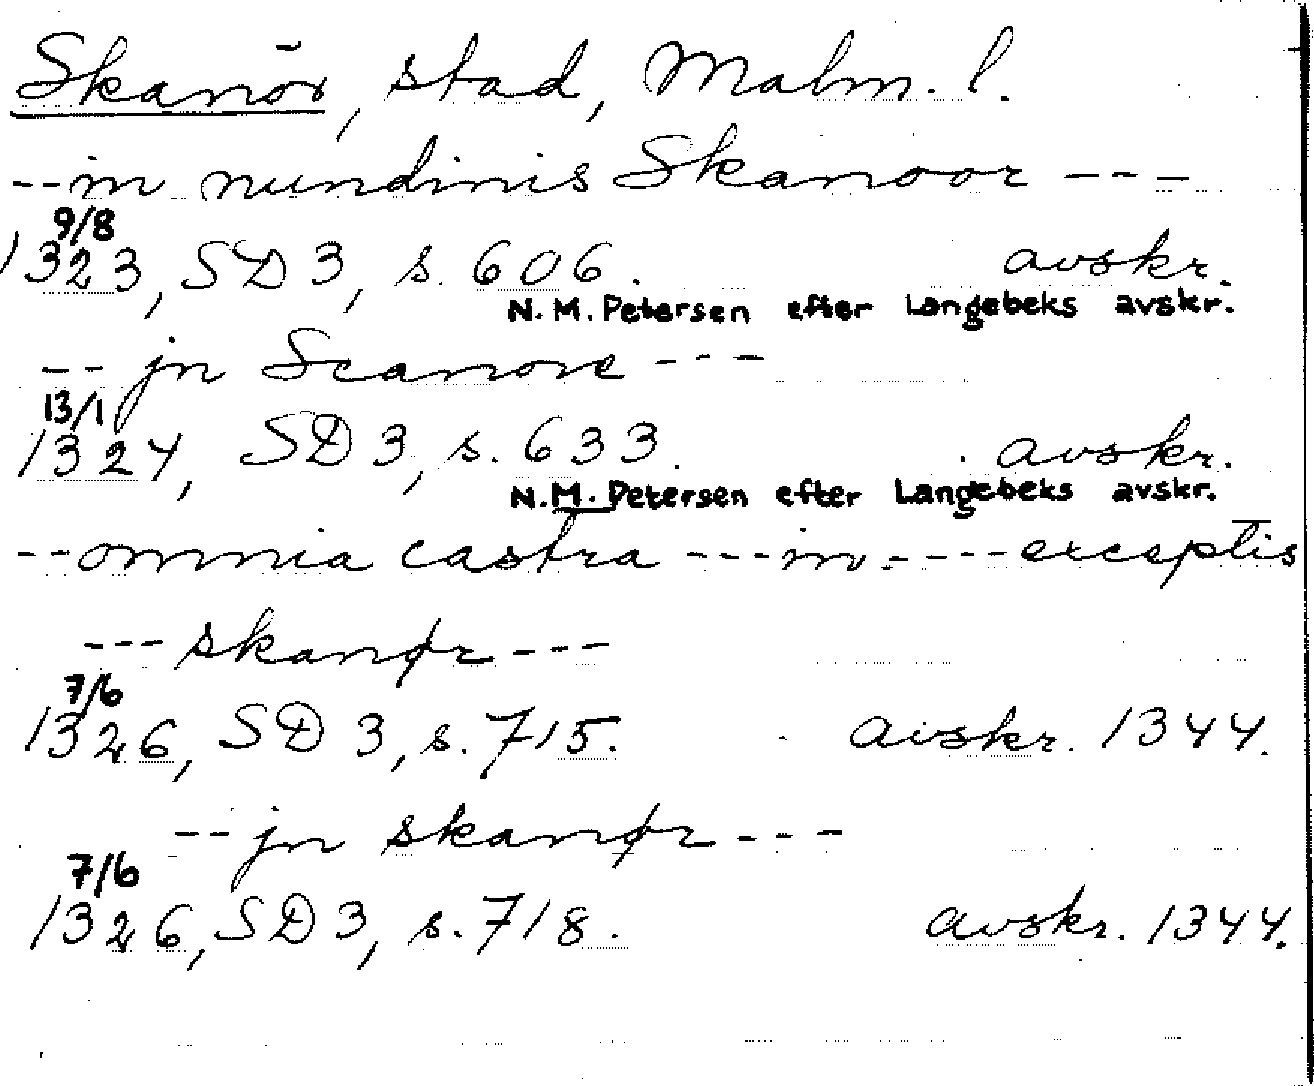 Skanör, stad, Malm. l.
--in nundinis Skanoor ---
9/8
1323, SD 3, s. 606. avskr.
N. M. Petersen efter Langebeks avskr.
-- jn Scanore ---
13/1
1324, SD 3, s. 633. avskr.
N. M. Petersen efter Langebeks avskr.
--omnia castra ---in ----exceptis
--- skanør ---
7/6
1326, SD 3, s. 715. avskr. 1344.
-- jn skanør ---
7/6
1326, SD 3, s. 718. avskr. 1344.